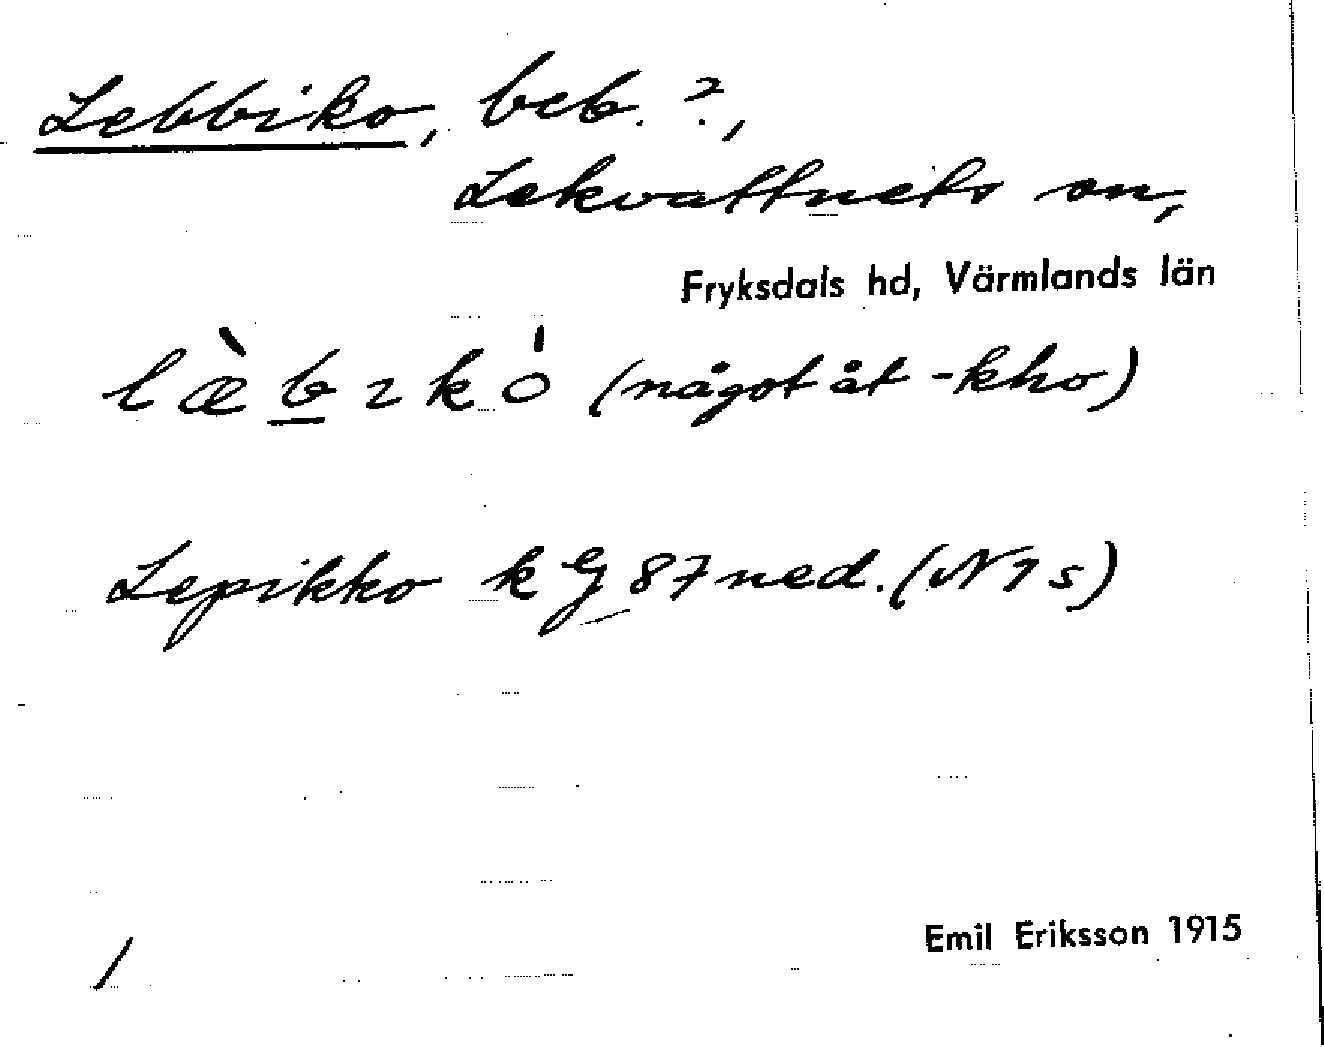 Lebbiko, beb. ?,
Lekvattnets sn,
Fryksdals hd, Värmlands län
læ̀bıkó (något åt -kho)
Lepikko k eg 87 ned. (N 1 s)
Emil Eriksson 1915
/